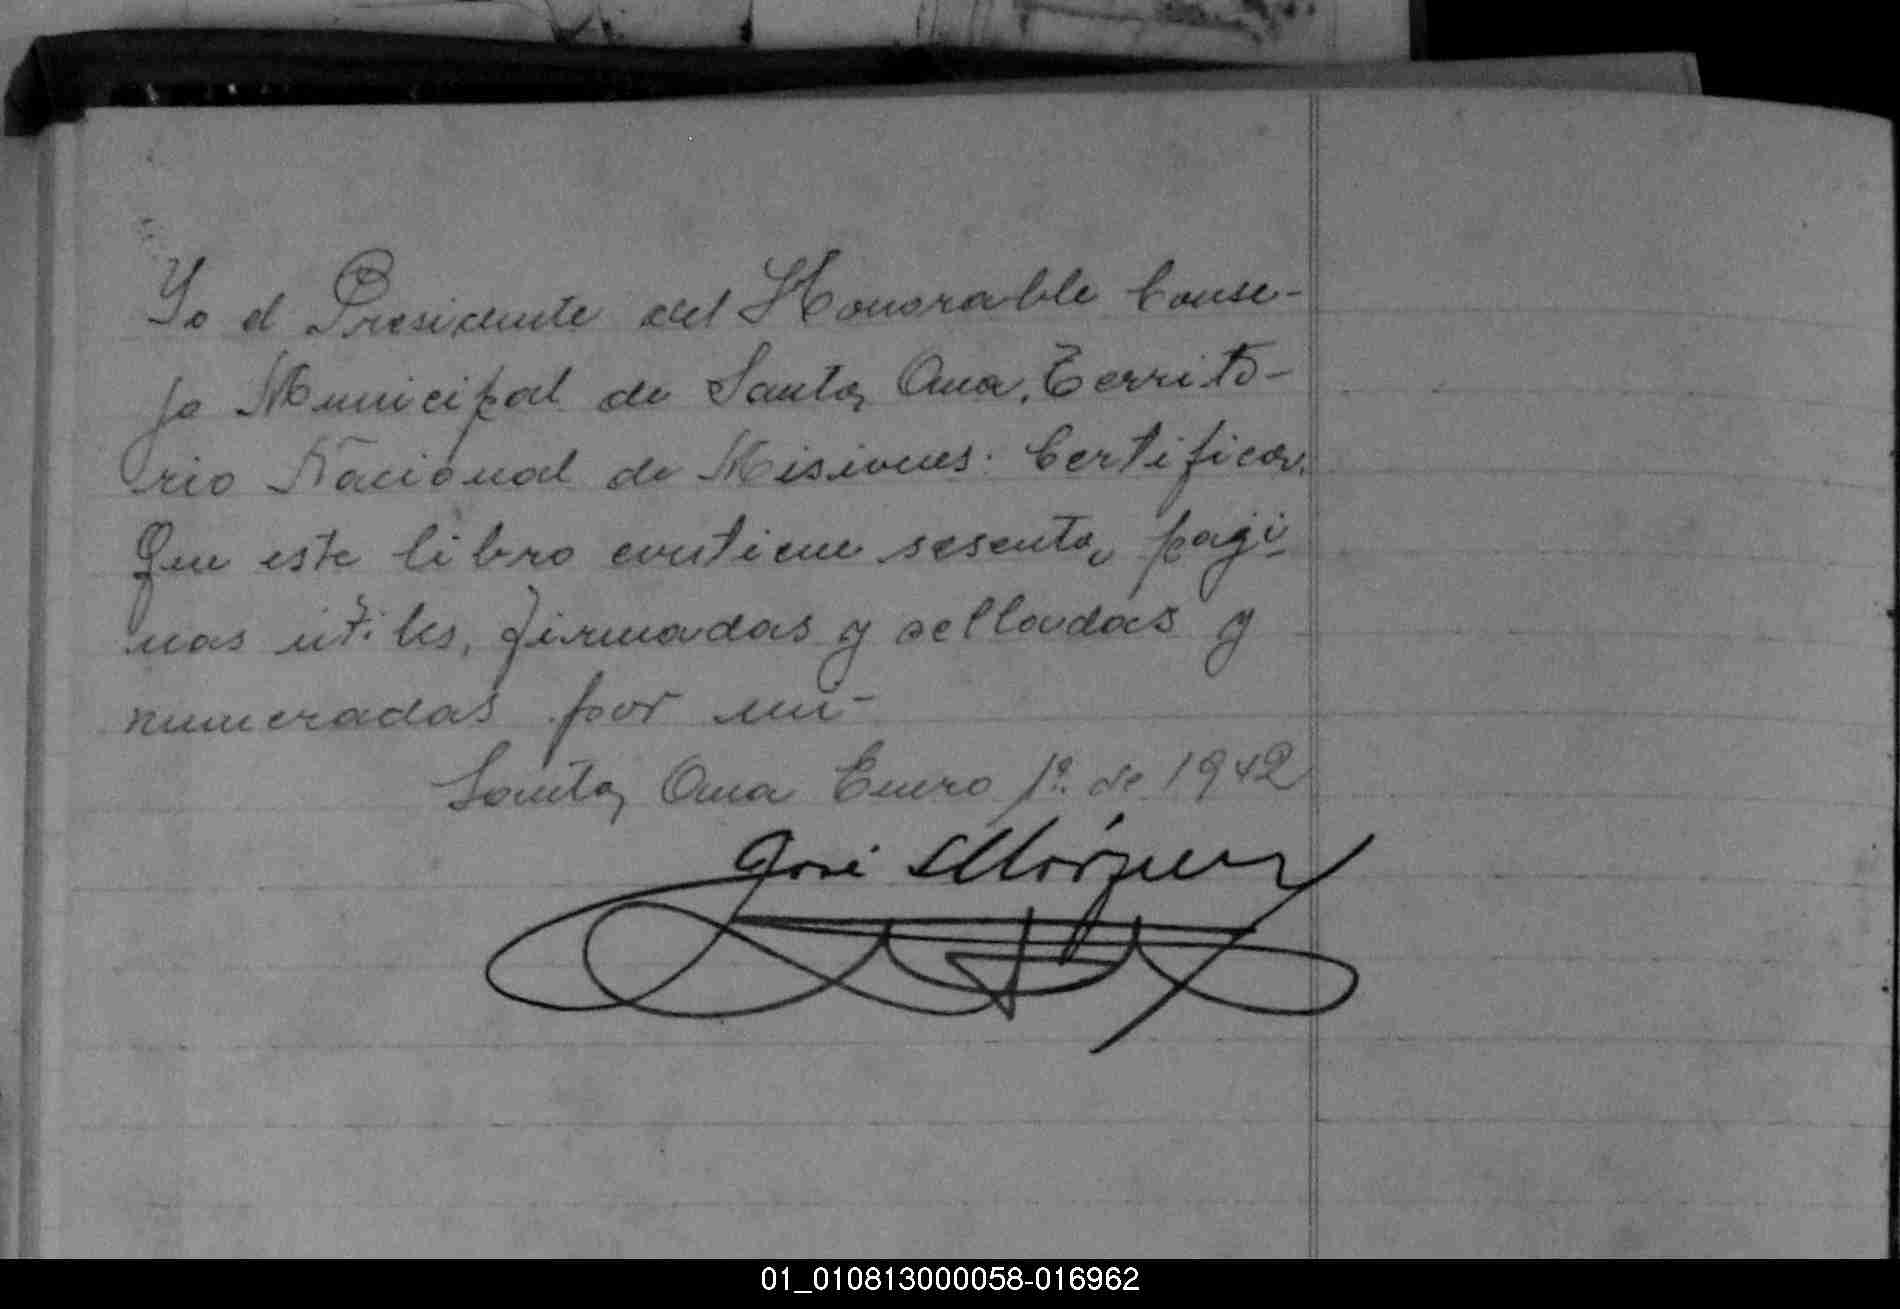 Yo el Presidente del Honorable Conse-
jo Municipal de Santa Ana, Territo-
rio Nacional de Misiones. Certifica.
Que este libro contiene sesenta pagi-
nas utiles, firmadas y selladas y
numeradas por mi-
Santa Ana Enero 1º de 1942
José Márquez
01_010813000058-016962